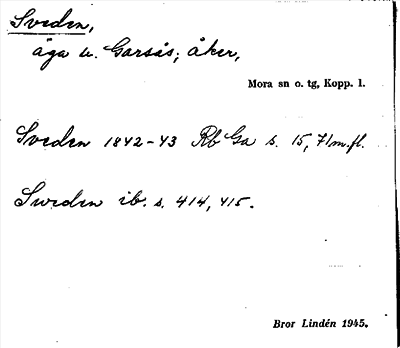 Sveden,
äga u. Garsås; åker,
Mora sn o. tg, Kopp. l.
Sveden 1842-43 Rb Ga s. 15, 71 m.fl.
Sweden ib. s. 414, 415.
Bror Lindén 1945.